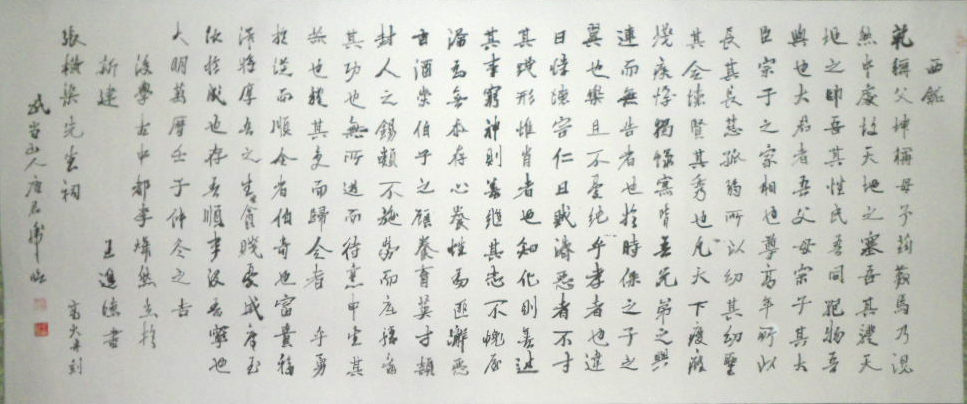 西銘
乾稱父坤稱母予茲藐焉乃混
然中處故天地之塞吾其體天
地之帥吾其性民吾同胞物吾
與也大君者吾父母宗子其大
臣宗子之家相也尊高年所以
長其長慈孤弱所以幼其幼聖
其合德賢其秀也凡天下疲癃
殘疾惸獨鰥寡皆吾兄弟之顛
連而無告者也於時保之子之
翼也樂且不憂純乎孝者也違
曰悖德害仁曰賊濟惡者不才
其踐形惟肖者也知化則善述
其事窮神則善繼其志不愧屋
漏為無忝存心養性為匪懈惡
旨酒崇伯子之顧養育英才穎
封人之錫類不施勞而底豫舜
其功也無所逃而待烹申生其
恭也體其受而歸全者 乎勇
於從而順令者伯奇也富貴福
澤將厚吾之生貧賤憂戚庸玉
汝於成也存吾順事沒吾寧也
大明萬曆壬子仲冬之吉
後學古中都李燦然立於
新建 王進德書
張橫渠先生祠 刻
武當山人唐君